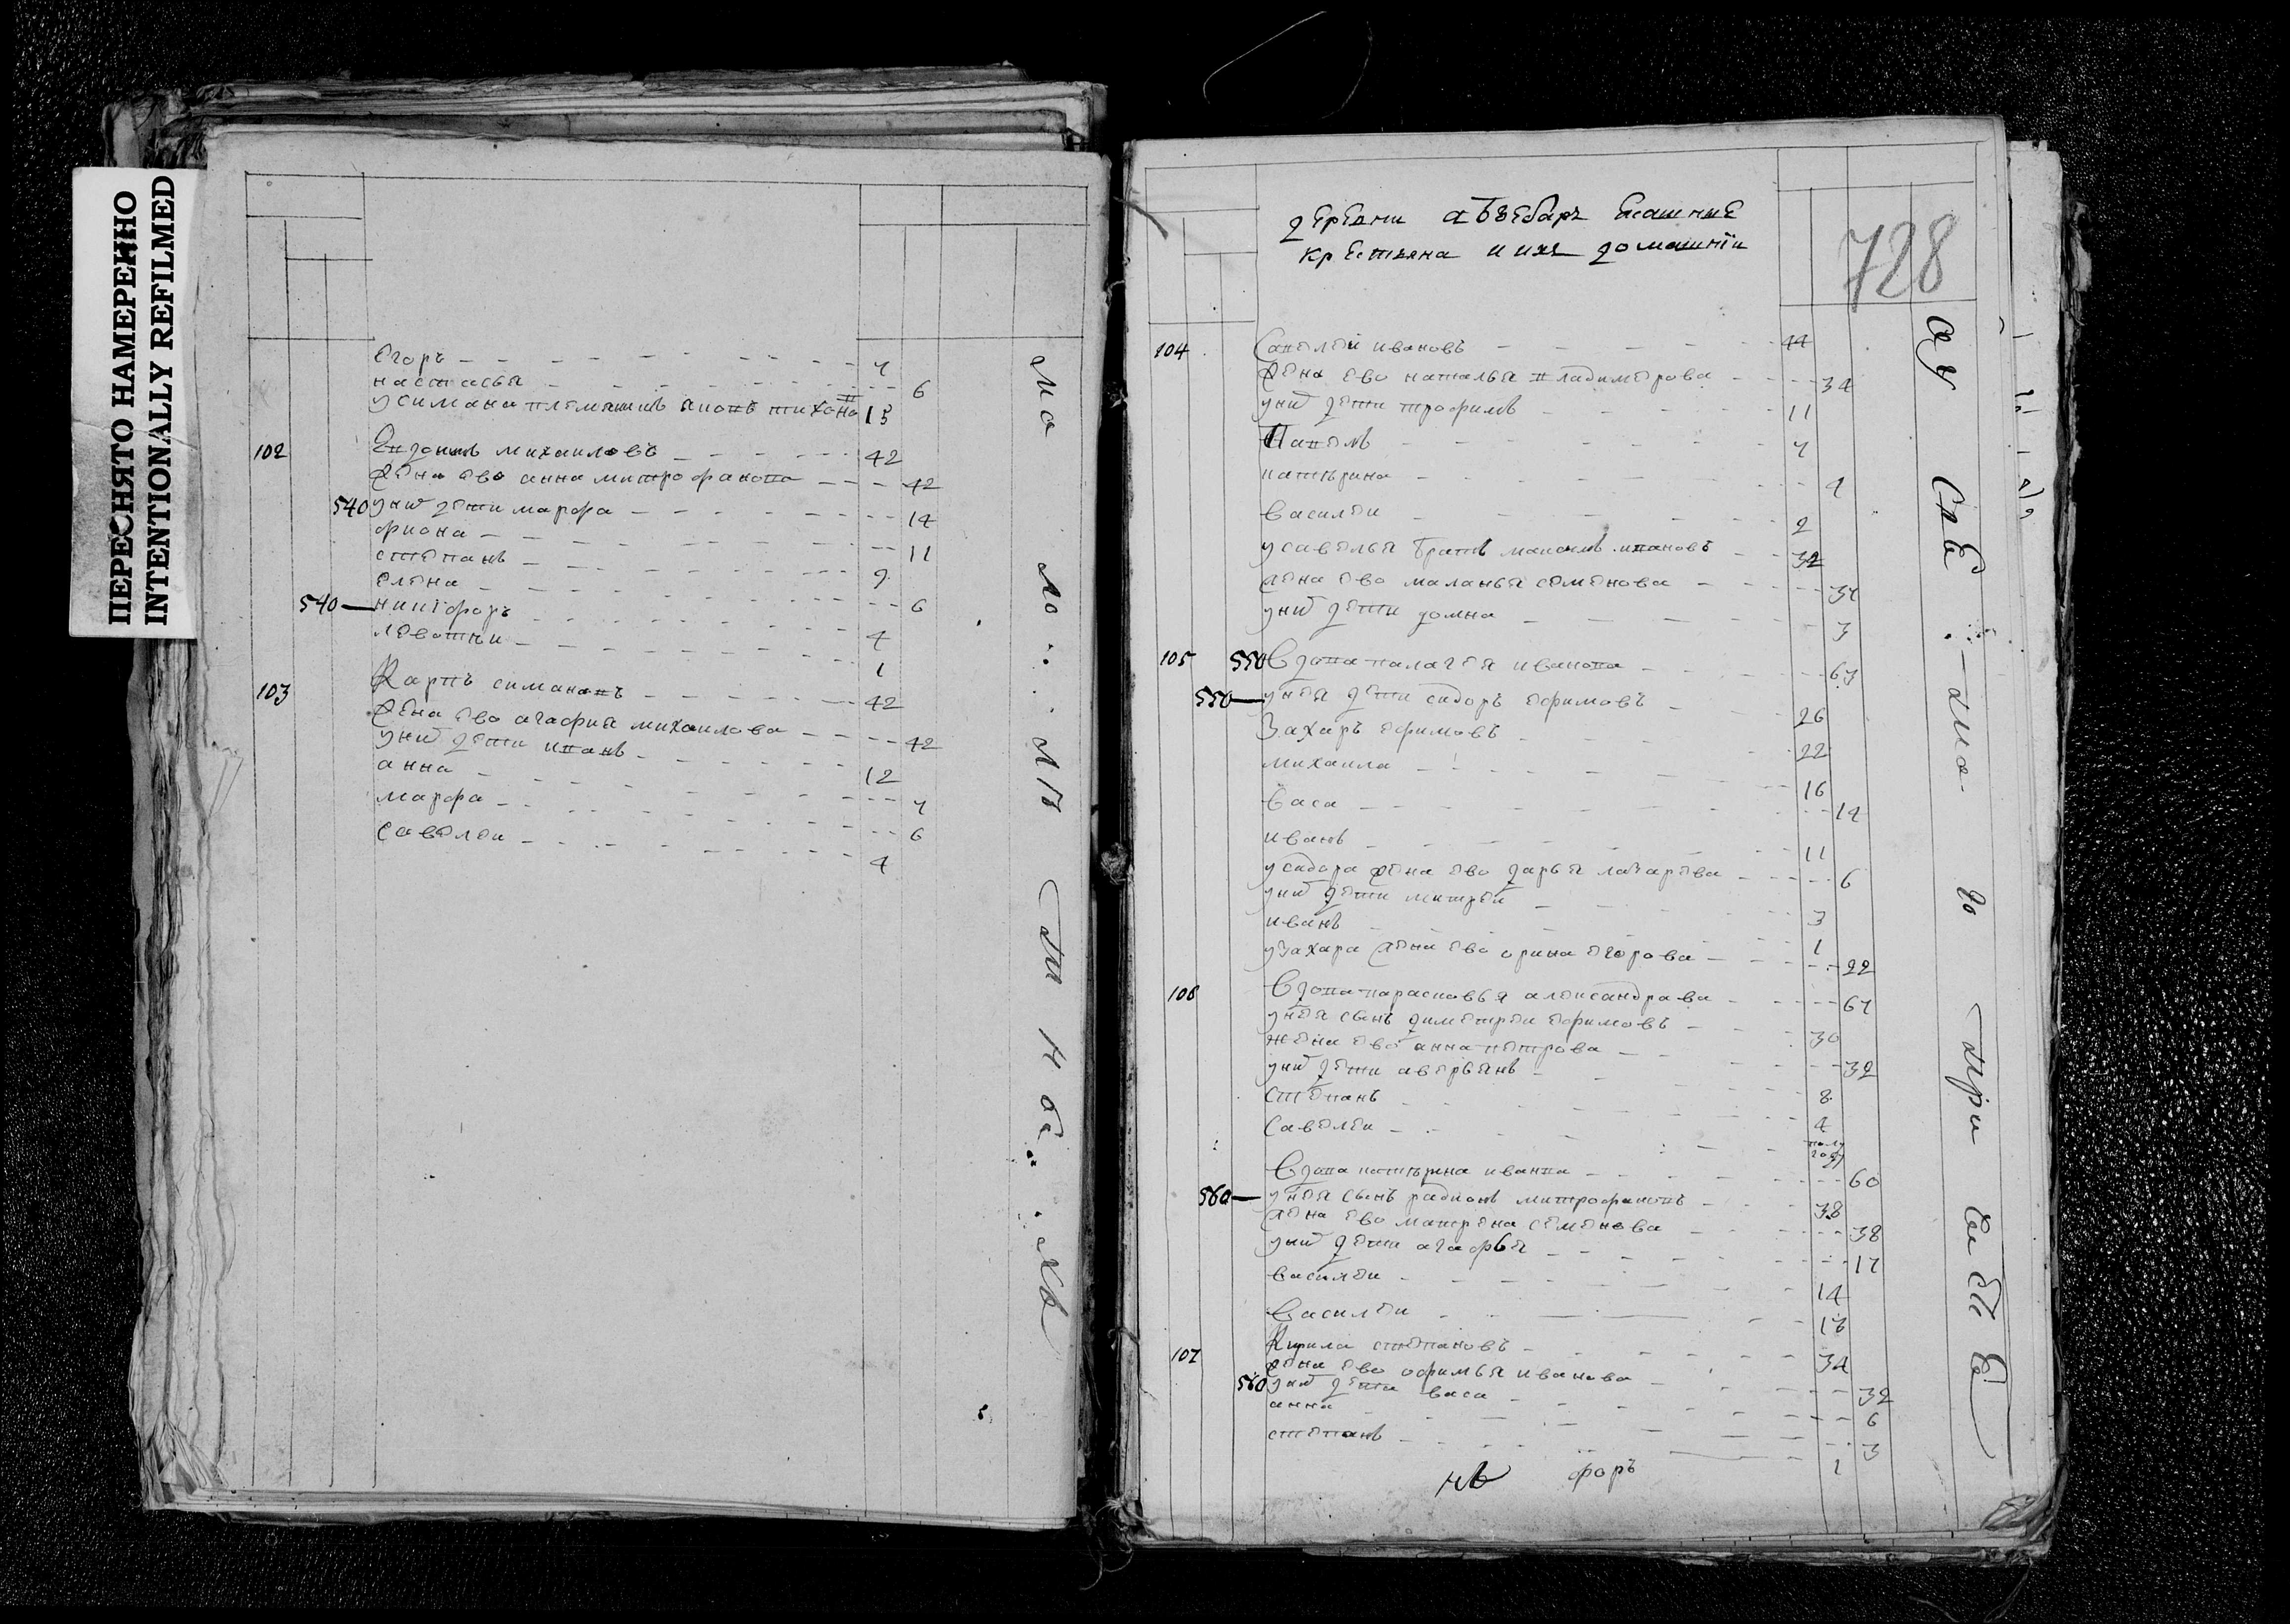 ПЕРЕСНЯТО НАМЕРЕННО
INTENTIONALLY REFILMED
Егоръ 7
настасья 6
усимана племянникъ тихоно 13
102 Евдокимъ михаиловъ 42
жена ево анна митрофанова 42
540 унихъ дети марфа 14
фиона 11
степанъ 9
елена 6
540 никифоръ 4
1
103 Карпъ симановъ 42
жена ево агафия михаилова 42
унихъ дети иванъ 12
анна 7
марфа 6
савелеи 4
728
деревни ясашние
крестьяна и ихъ домашнiи
104 Савелеи ивановъ 44
жена ево наталья владимерова 34
унихъ дети трофимъ 11
Павелъ 7
катърина 4
василеи 2
усавелья братъ ивановъ 32
жена ево маланья семенова 37
унихъ дети домна 3
105 550 Вдова палагея иванова 67
550 унея дети сидоръ ефимовъ 26
Захаръ ефимовъ 22
михаила 16
васа 14
иванъ 11
усидора жена ево дарья лазарева 6
унихъ дети митреи 3
иванъ 1
узахара жена ево орина егорова 22
106 Вдова парасковья александрава 67
унея сынъ диметреи ефимовъ 30
жена ево анна петрова 32
унихъ дети аверьянъ 8
степанъ 4
савелеи полу году
Вдова катърина иванва 60
560 унея сынъ радионъ митрофановъ 38
жена ево матрена семенова 38
унихъ дети агафья 17
василеи 14
Василеи 13
107 Кирила степановъ 34
жена ево офимья иванова 32
560 унихъ дети васа 6
анна 3
степанъ 1
форъ